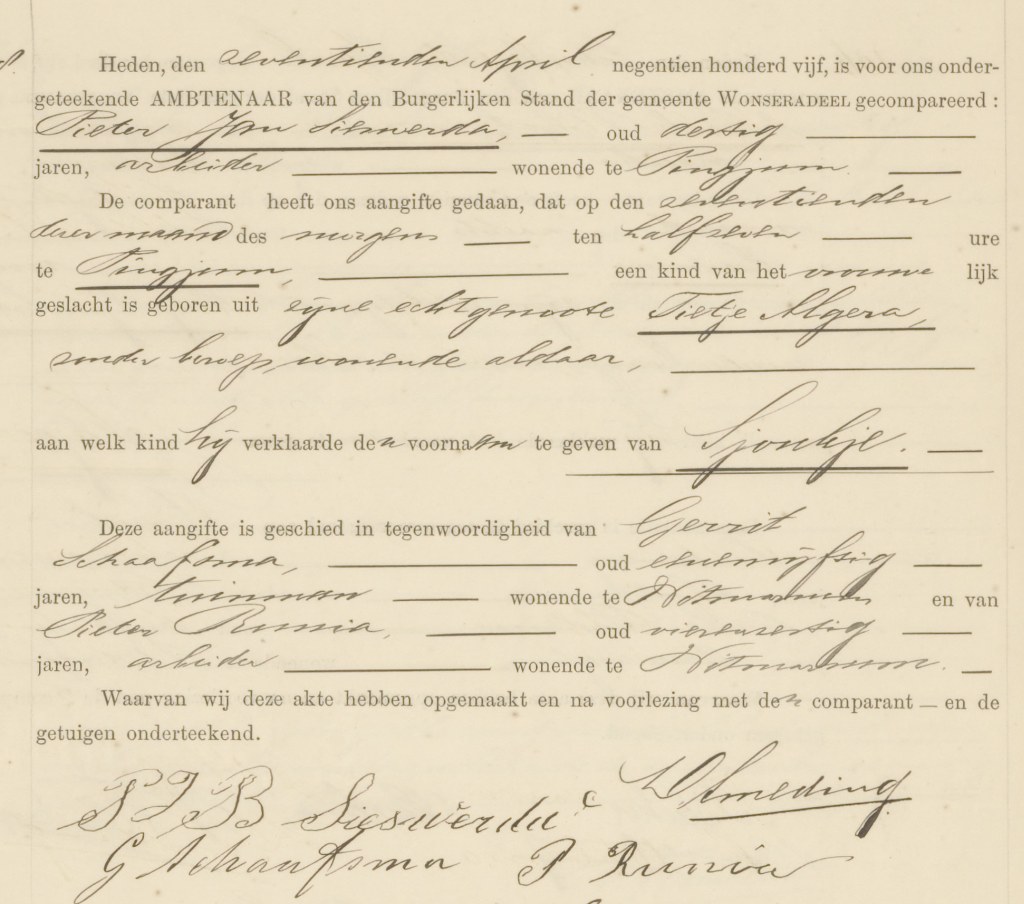 Heden, den seventienden April negentien honderd vijf, is voor ons onder-
geteekende AMBTENAAR van den Burgerlijken Stand der gemeente WONSERADEEL gecompareerd :
Pieter Jan Sieswerda, — oud dertig —
jaren, arbeider — wonende te Pingjum. —
De comparant heeft ons aangifte gedaan, dat op den seventienden
dezer maand des morgens — ten halfseven — ure
te Pingjum, — een kind van het vrouwe lijk
geslacht is geboren uit zijne echtgenoote Tietje Algera,
zonder beroep, wonende aldaar, —
aan welk kind hij verklaarde den voornaam te geven van Sjoukje. —
Deze aangifte is geschied in tegenwoordigheid van Gerrit
Schaafsma, — oud eenenvijfsig —
jaren, tuinman — wonende te Witmarsum en van
Pieter Runia, — oud vierensertig —
jaren, arbeider — wonende te Witmarsum. —
Waarvan wij deze akte hebben opgemaakt en na voorlezing met den comparant — en de
getuigen onderteekend.
P J B Sieswerda Smeding
G Schaafsma P Runia